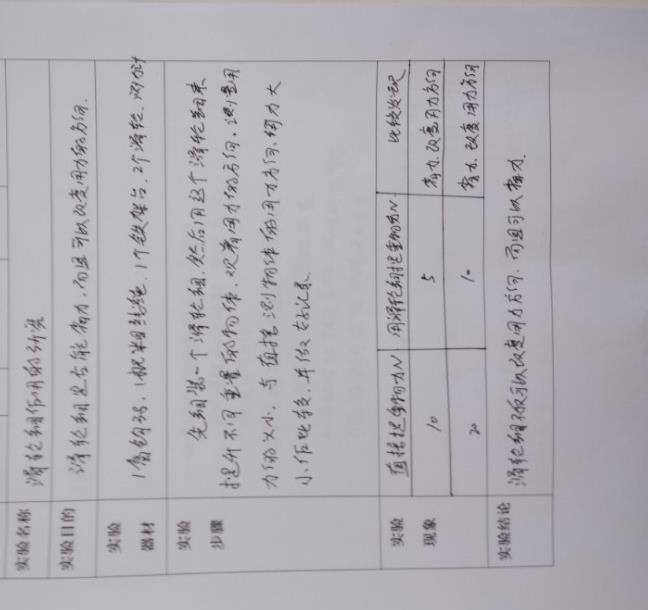 实验名称 滑轮组作用的研究
实验目的 滑轮组是否能省力,而且可以改变用力的方向.
实验器材 1盒钩码、1根棉线绳、1个铁架台、2个滑轮、测力计
实验步骤 先组装一个滑轮组,然后用这个滑轮组来
提升不同重量的物体,观察用力的方向,测量用
力的大小,与直接测物体的用力方向、用力大
小作比较,并做好记录.
实验现象 直接提重物力N 用滑轮组提重物力N 比较发现
10 5 省力、改变用力方向
20 10 省力、改变用力方向
实验结论 滑轮组不仅可以改变用力方向,而且可以省力.